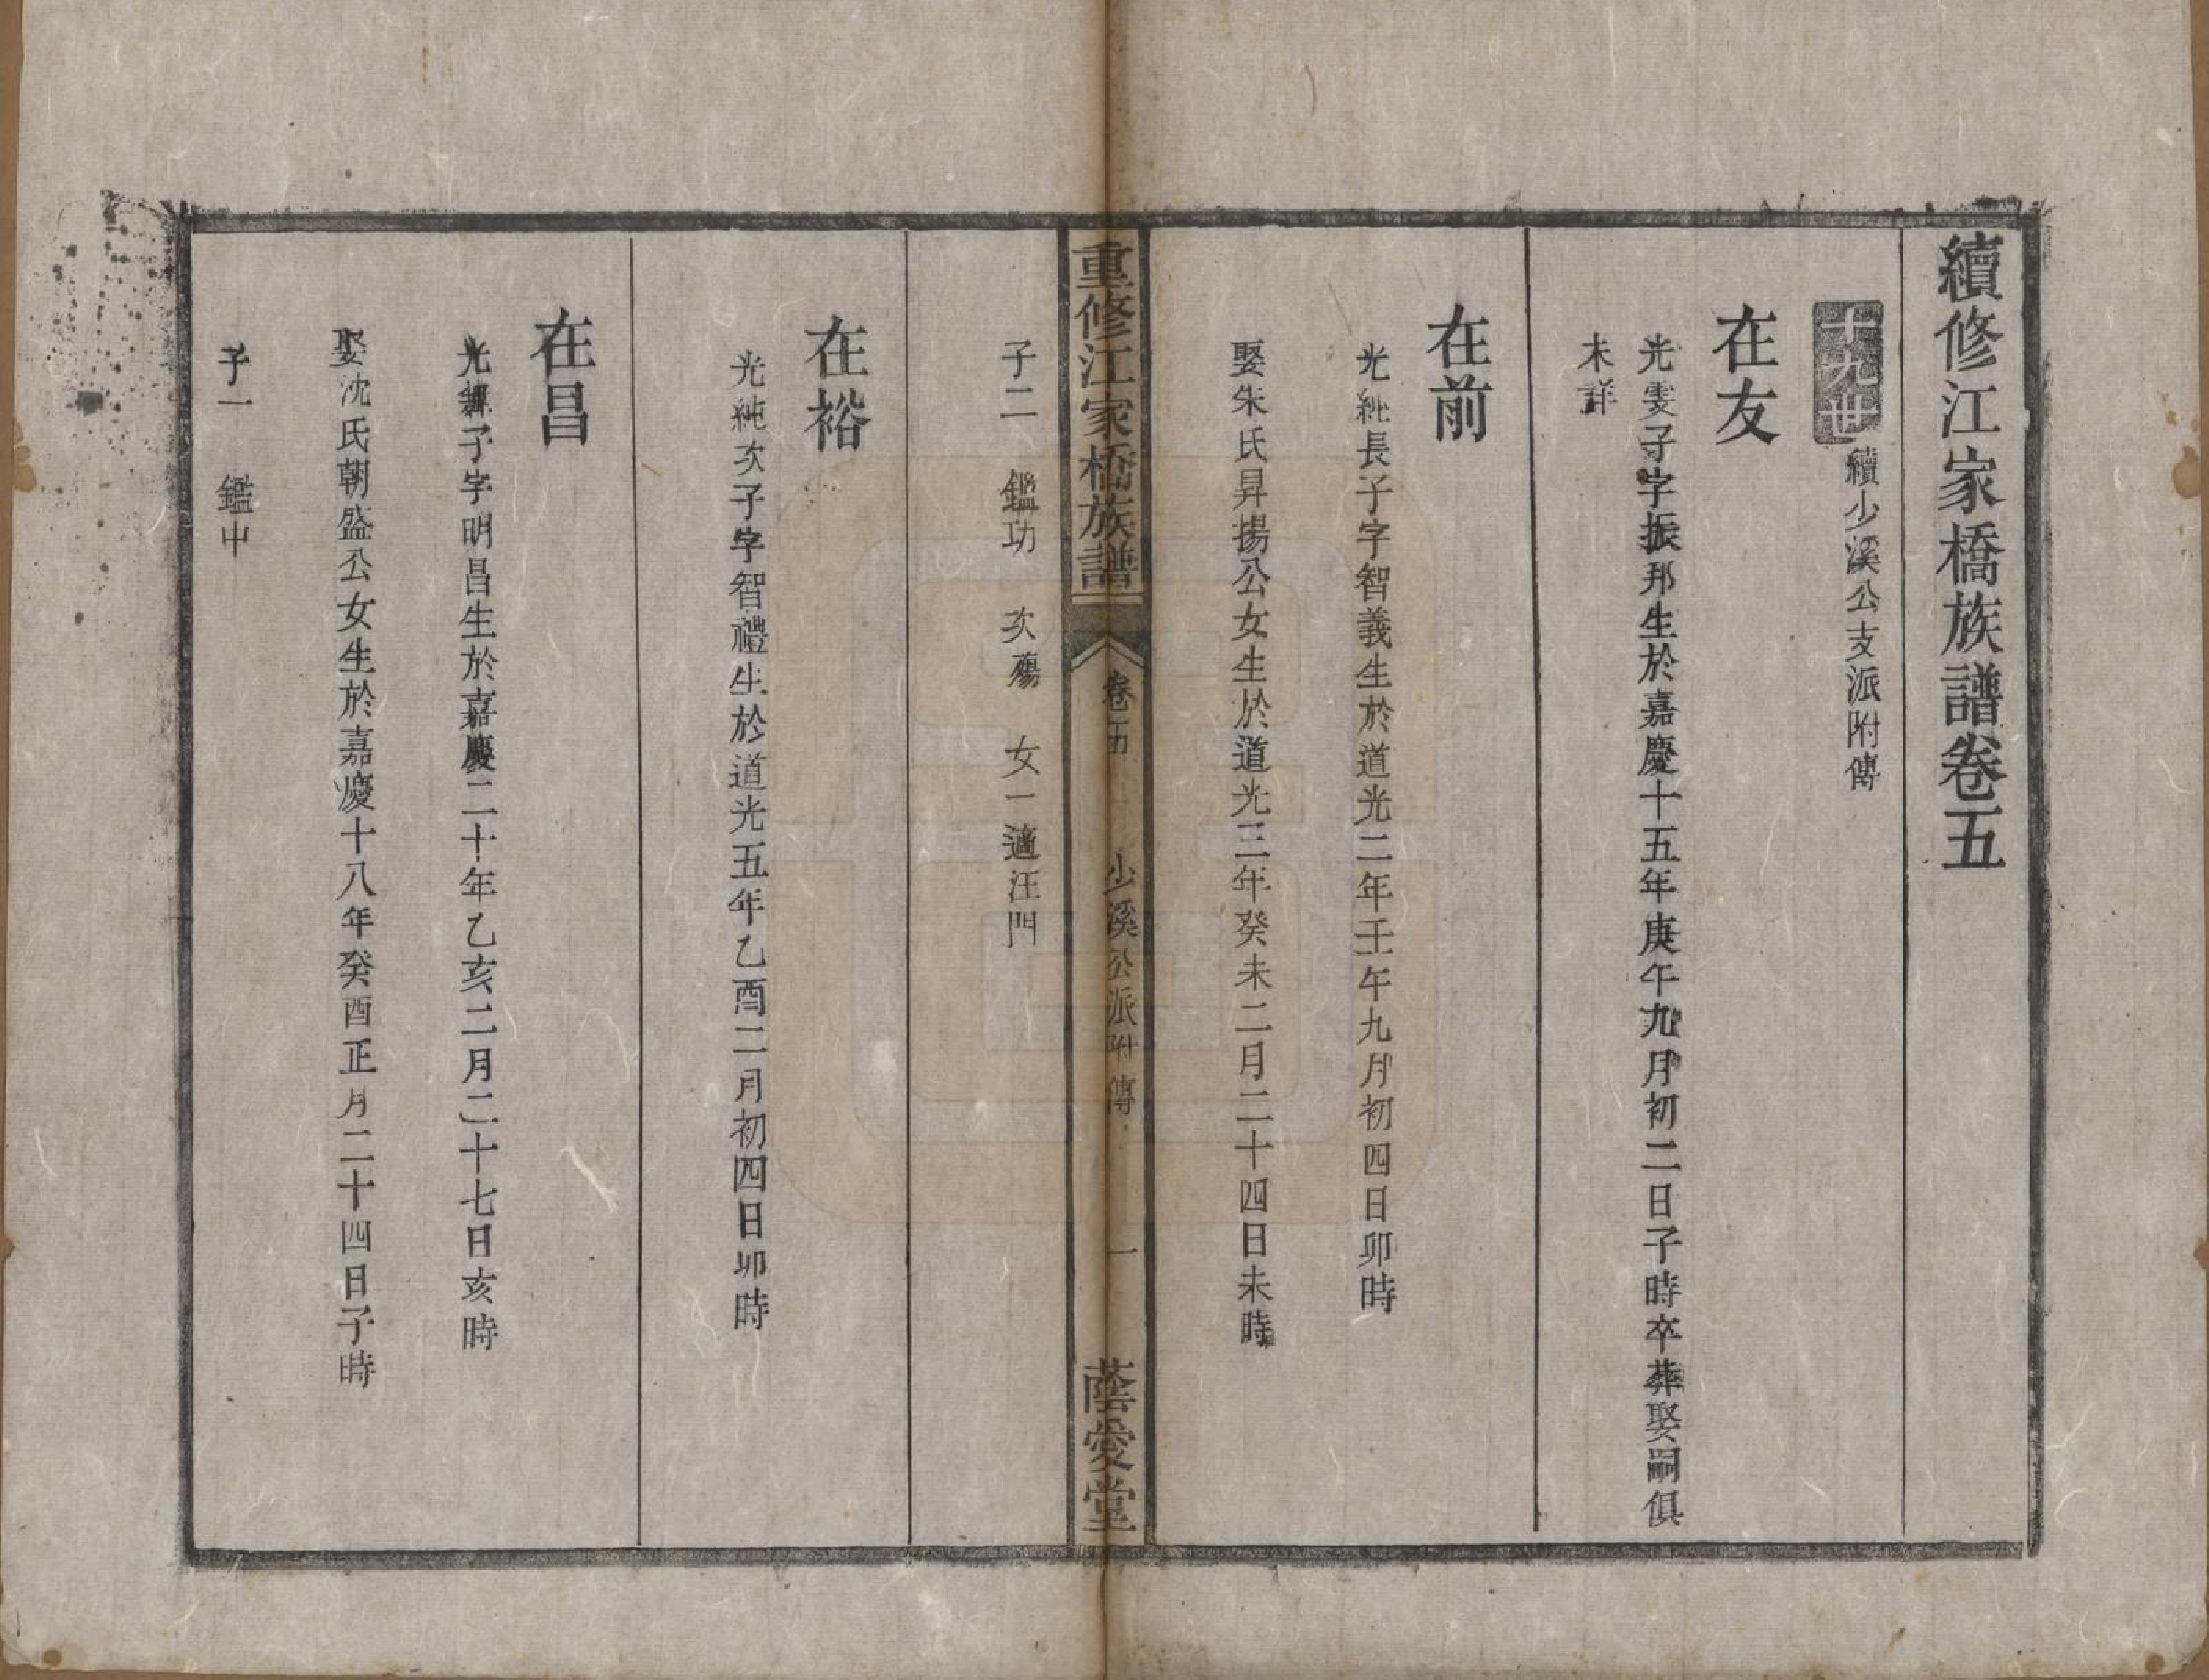 續修江家橋族譜卷五
十九世 續少溪公支派附傳
在友
光雯子字振邦生於嘉慶十五年庚午九月初二日子時卒葬娶嗣俱
未詳
在前
光純長子字智義生於道光二年壬午九月初四日卯時
娶朱氏昇揚公女生於道光三年癸未二月二十四日未時
重修江家橋族譜 卷五 少溪公派附傳 一 蔭愛堂
子二 鑑功 次殤 女一適汪門
在裕
光純次子字智禮生於道光五年乙酉二月初四日卯時
在昌
光子字明昌生於嘉慶二十年乙亥二月二十七日亥時
娶沈氏朝盛公女生於嘉慶十八年癸酉正月二十四日子時
子一 鑑中